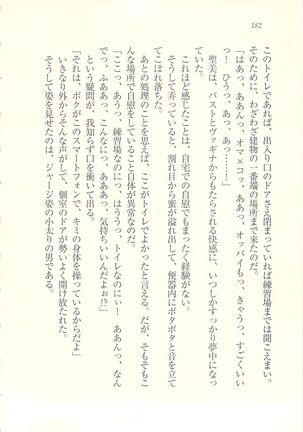 182
このトイレであれば、出入り口のドアさえ閉まっていれば練習場まで聞こえまい。
そのために、わざわざ建物の一番端の場所まで来たのだ。
「はあっ、ああんっ、オマ×コっ、ああっ、オッパイもっ、きゃうっ、すごくいい
っ! ひうっ、あっ、あっ……!」
聖美は、バストとヴァギナからもたらされる快感に、いつしかすっかり夢中になっ
ていた。
これほど感じたことは、自宅での自慰でもまったく経験がない。
そうして弄っていると、割れ目から蜜が溢れ出して、便器内にボタボタと音を立て
てこぼれ落ちた。
あとの処理のことを思えば、ここがトイレでよかったと言える。だが、そもそもこ
んな場所で自慰をしていること自体が異常なのだ。
「ここっ、あうっ、練習場なのにっ、はううっ、トイレなのにぃ! ああんっ、なん
でっ、ふああっ、こんなにっ、あああっ、気持ちいいんだよぉ!?」
という疑問が、我知らず口を衝いて出る。
「それは、ボクがこのスマートフォンで、キミの身体を操っているからだよ」
いきなり外からそんな声がして、個室のドアが勢いよく開け放たれた。
そうして姿を見せたのは、ジャージ姿の小太りの男である。